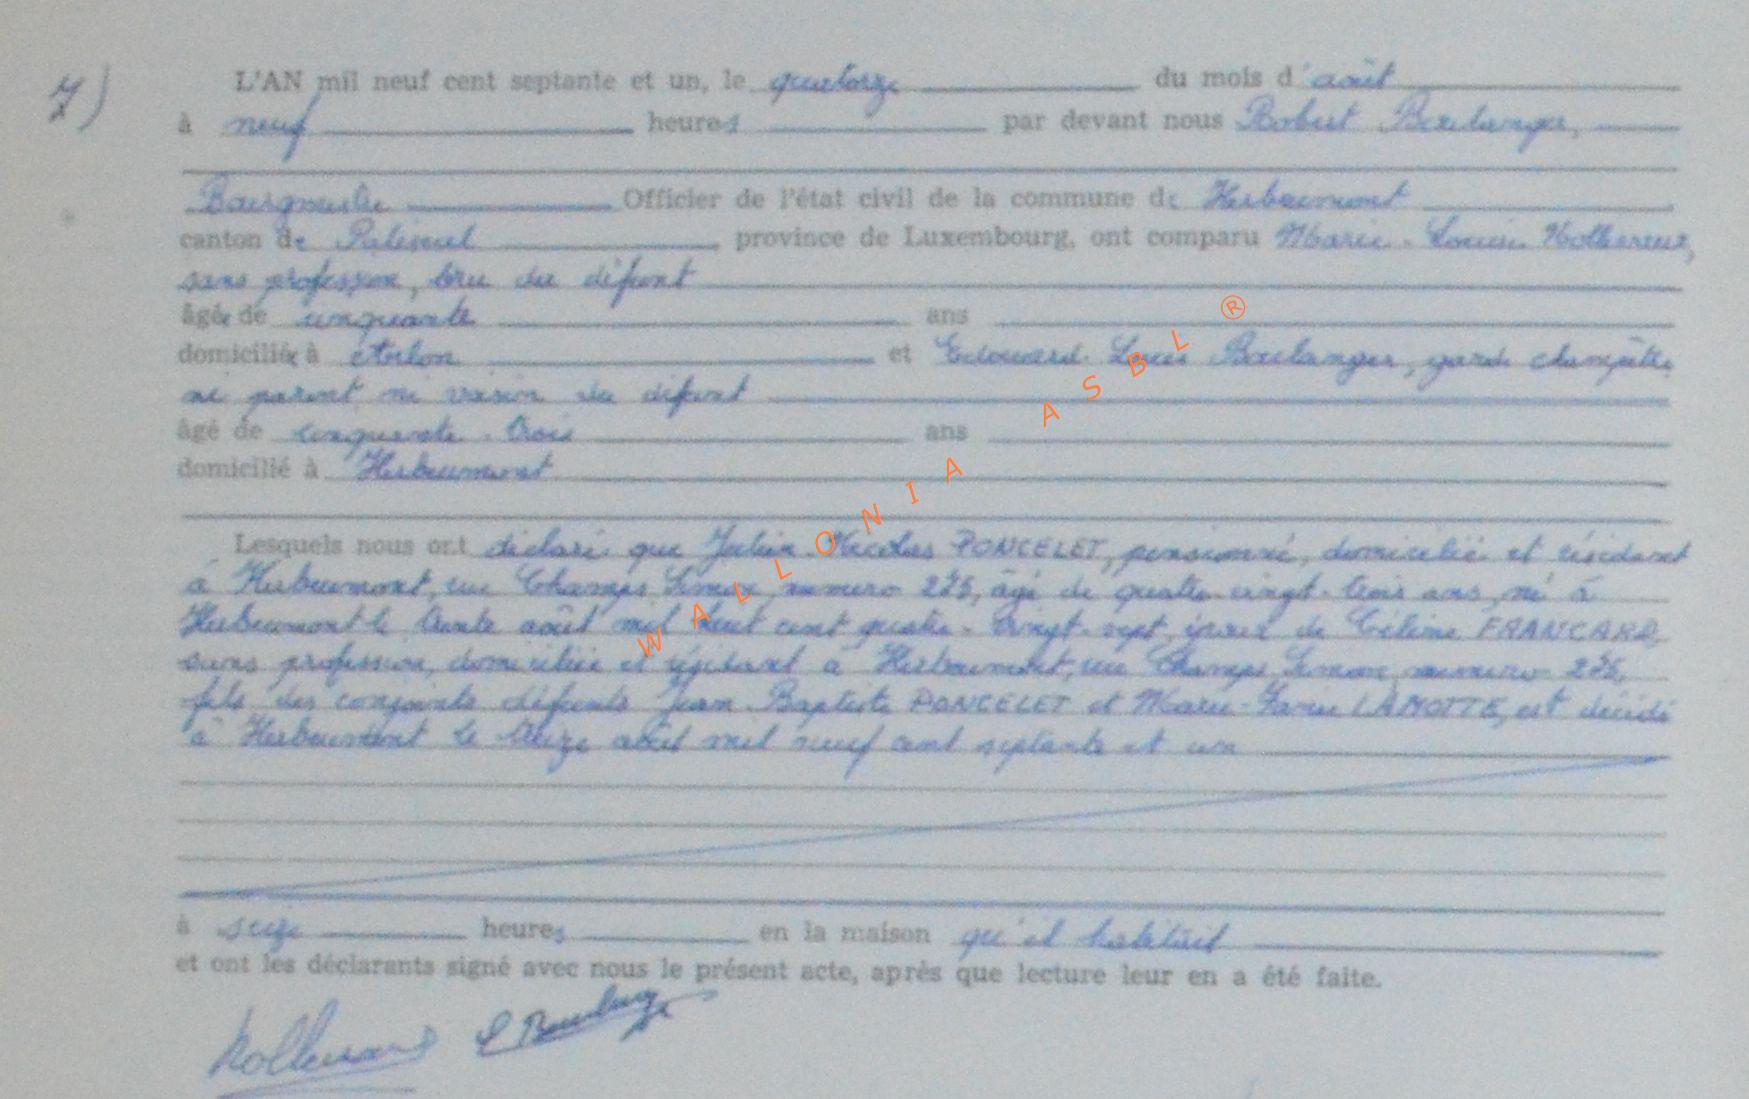 7)
L'AN mil neuf cent septante et un, le quatorze du mois d'août
à neuf heures par devant nous Robert Boulanger,
Bourgmestre Officier de l'état civil de la commune de Herbeumont
canton de Paliseul, province de Luxembourg, ont comparu Marie-Louise
sans profession, bru du défunt
âgée de cinquante ans
domiciliée à et Edouard Louis Boulanger, garde champêtre
ni parent ni voisin du défunt
âgé de cinquante-trois ans
domicilié à Herbeumont
Lesquels nous ont déclaré que Julien Nicolas PONCELET, pensionné, domicilié et résidant
à Herbeumont, rue Champs Simon, numéro 225, âgé de quatre-vingt-trois ans, né à
Herbeumont le trente août mil huit cent quatre-vingt-sept, époux de Céline FRANCARD,
sans profession, domiciliée et résidant à Herbeumont, rue Champs Simon, numéro 225,
fils des conjoints défunts Jean-Baptiste PONCELET et Marie- LAMOTTE, est décédé
à Herbeumont le treize août mil neuf cent septante et un
à seize heures en la maison qu'il habitait
et ont les déclarants signé avec nous le présent acte, après que lecture leur en a été faite.
WALLONIA ASBL ®